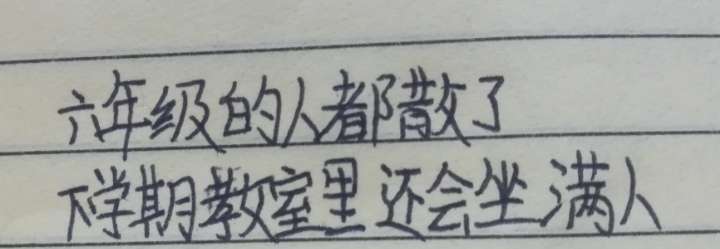 六年级的人都散了
下学期教室里还会坐满人